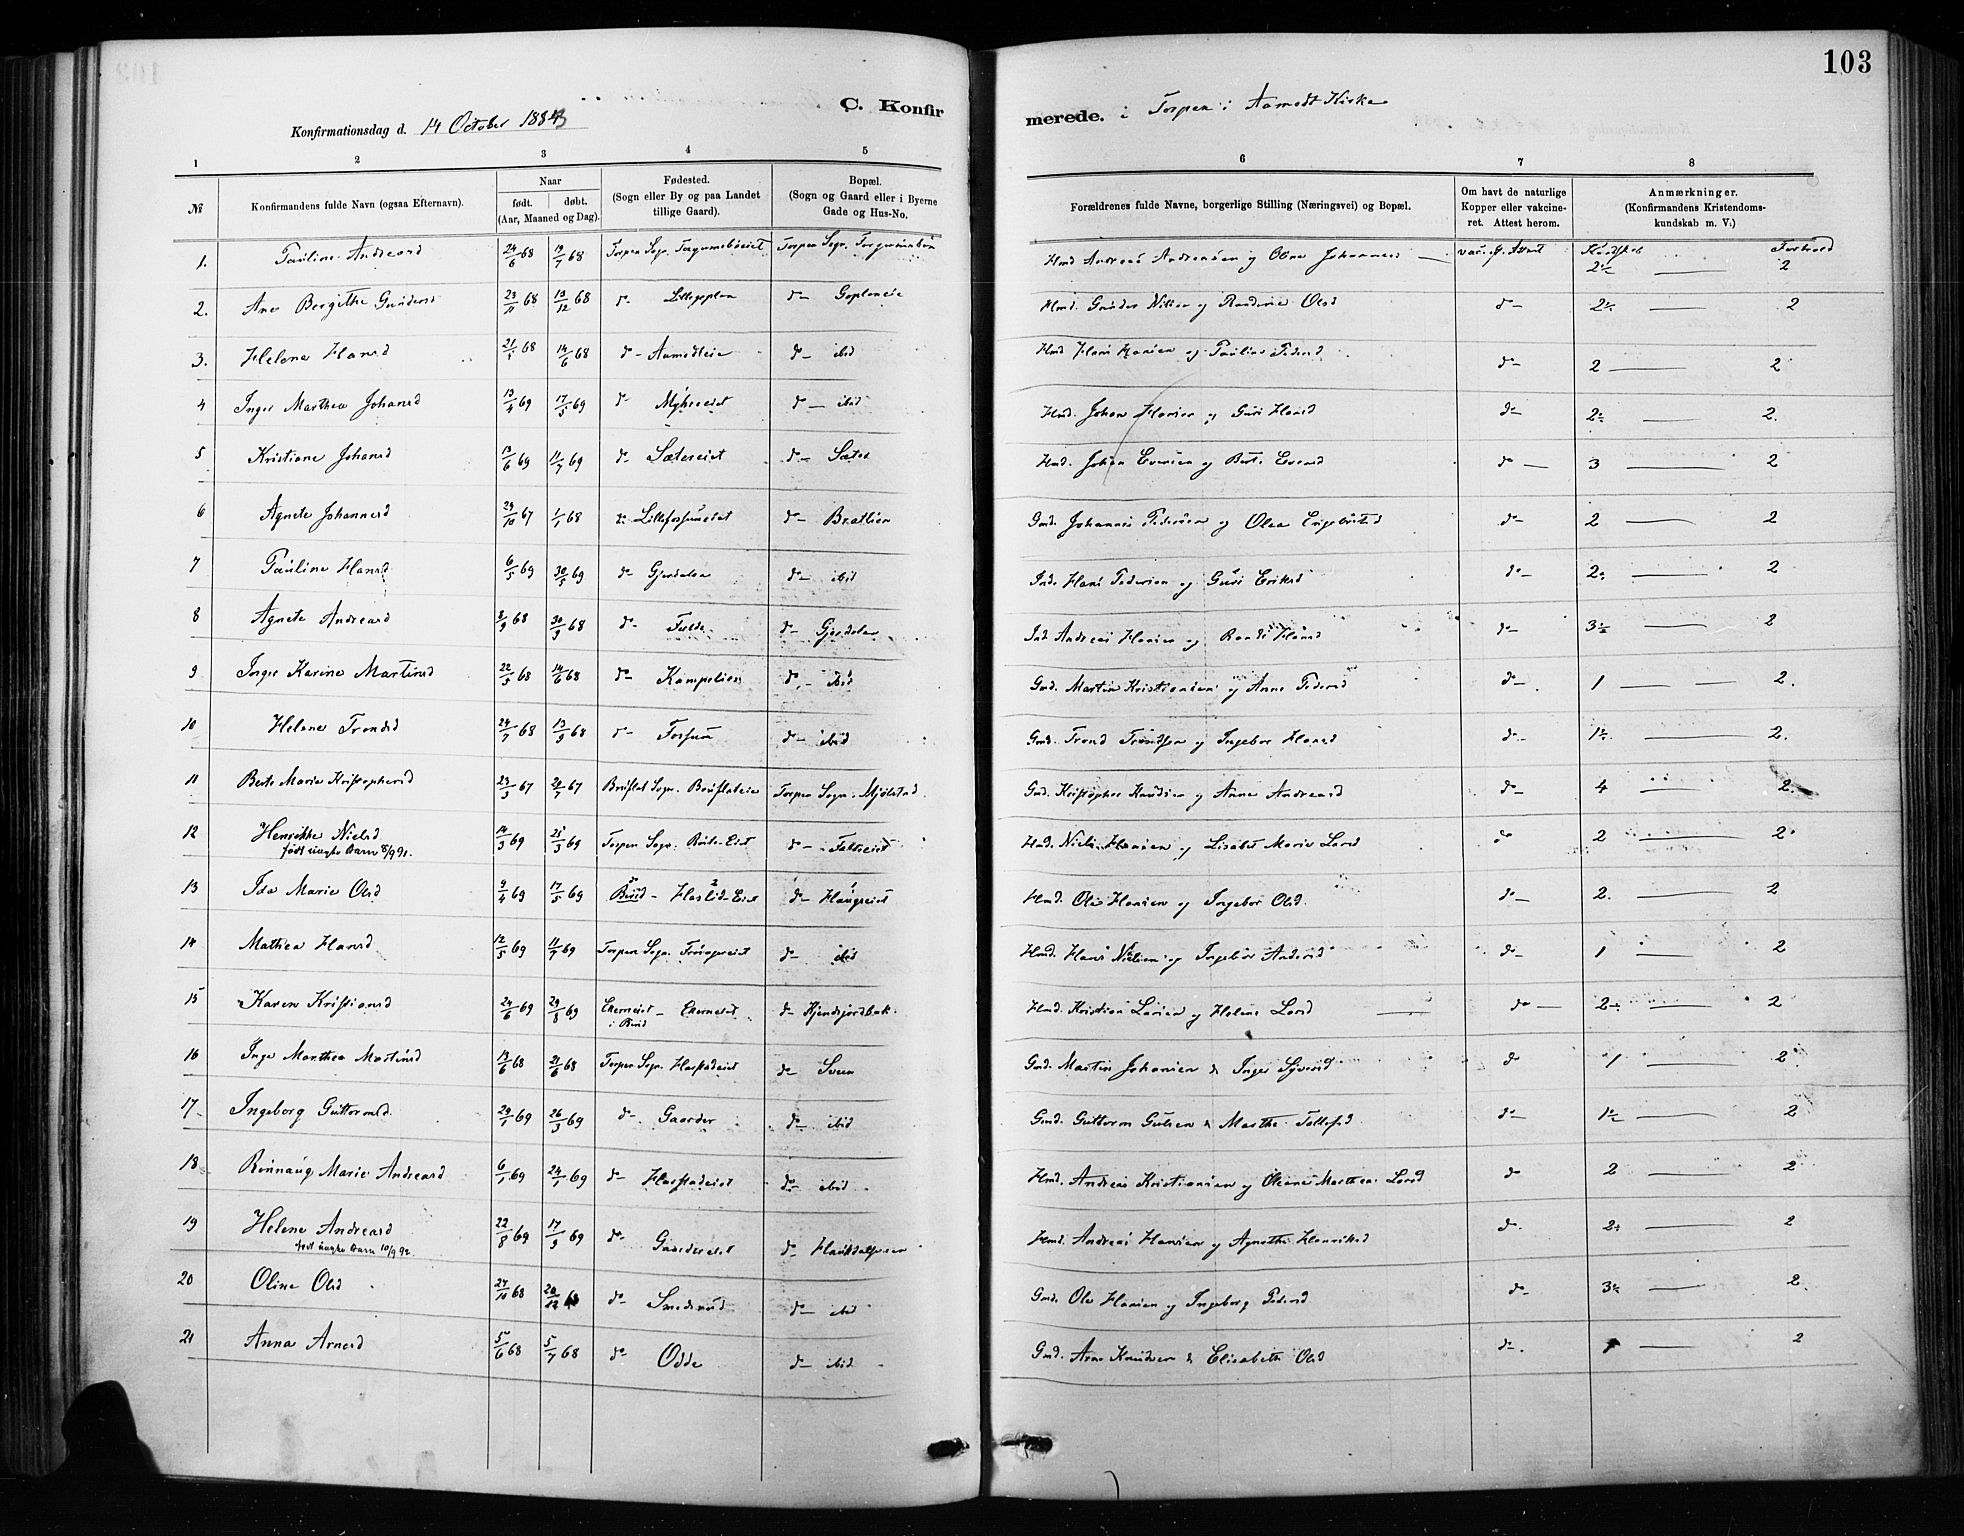 103
C. Konfir merede. i Torpen i Aamodt Kirke
Konfirmationsdag d. 14 October 1883
1 2 3 4 5 6 7 8
№ Konfirmandens fulde Navn (ogsaa Efternavn). Naar født. døbt. (Aar, Maaned og Dag). Fødested. (Sogn eller By og paa Landet tillige Gaard). Bopæl. (Sogn og Gaard eller i Byerne Gade og Hus-No. Forældrenes fulde Navne, borgerlige Stilling (Næringsvei) og Bopæl. Om havt de naturlige Kopper eller vakcineret. Attest herom. Anmærkninger. (Konfirmandens Kristendomskundskab m. V.)
1. Pauline Andreasd 24/6 68 19/7 68 Torpen Sogn Hmd Andreas Andreasen og Johannesd Kundskab Forhold 2
2. Ane Bergithe Gundersd 23/11 68 13/12 68 do Hmd. Gunder og Olsd do 2
3. Helene Hansd 21/5 68 14/6 68 do Aamodteie do ibid Hmd Hans Hansen og Pauline Pedersd do 2 2
4 Inger Marthea Johansd 13/4 69 17/5 69 do Myhreeiet do ibid Hmd. Johan Hansen og Guri Hansd do 2
5 Kristiane Johansd 13/6 69 11/7 69 do Sætereiet do Sæter Hmd. Johan Evensen og Berte Evensd do 3 2
6 Agnete Johannesd 29/10 67 1/1 68 do Lilleforsumeiet do Bratlien Gmd. Johannes Pedersen og Olea Engebretsd do 2 2
7 Pauline Hansd 6/5 69 30/5 69 do Gjerdalen do ibid Ind. Hans Pedersen og Guri Eriksd do 2
8 Agnete Andreasd 8/9 68 30/9 68 do do Gjerdalen Ind Andreas Hansen og Hansd do 3½ 2
9 Inger Karine Martinsd 22/5 68 14/6 68 do Kampelien do ibid Gmd. Martin Kristiansen og Anne Pedersd do 1 2.
10 Helene Trondsd 24/7 68 13/9 68 do Forsum do ibid Gmd. Trond Trondsen og Ingebor Hansd do 2.
11 Berte Marie Kristophersd 23/3 67 21/7 67 Bruflat Sogn. Bruflateie Torpen Sogn. Mjølstad Gmd. Kristopher Knudsen og Anne Andreasd do 4 2.
12 Henrikke Nielsd 14/3 69 25/3 69 Torpen Sogn. do Hmd. Niels Hansen og Lisabet Marie Larsd do 2 2
født uægte Barn 8/9 91.
13 Ida Marie Olsd 9/4 69 17/5 69 Biri Haslid-Eiet do Haugseiet Hmd. Ole Hansen og Ingebor Olsd. do 2. 2
14 Mathea Hansd 12/5 69 11/7 69 Torpen Sogn. do ibid Hmd. Hans Nielsen og Ingebor Andersd do 1 2
15 Karen Kristiansd 24/6 69 29/8 69 Ekerneiet i Ekerneiet do Hmd. Kristian Larsen og Helene Larsd do 2
16 Inger Marthea Martinsd 13/6 68 21/6 68 Torpen Sogn. Harstadeiet do Sveen Gmd. Martin Johansen & Inger Syversd do 1 2
17 Ingeborg Guttormsd. 29/1 69 26/3 69 do Gaarder do ibid Gmd. Guttorm Gulsen & Marthe Tollefsd. do 2
18 Rønnaug Marie Andreasd 6/1 69 24/1 69 do Harstadeiet do ibid Hmd. Andreas Kristiansen og Oleane Marthea Larsd do 2 2
19 Helene Andreasd 22/8 69 17/9 69 do Gaardereiet do Hmd. Andreas Hansen og Agnethe Henriksd do 2
født uægte Barn 10/9 92.
20 Oline Olsd 27/10 68 20/12 68 do Smedsrud do ibid Gmd. Ole Hansen og Ingeborg Pedersd do 3½ 2
21 Anna Arnesd 5/6 68 5/7 68 do Odde do ibid Gmd. Arne Knudsen & Elisabeth Olsd do 2